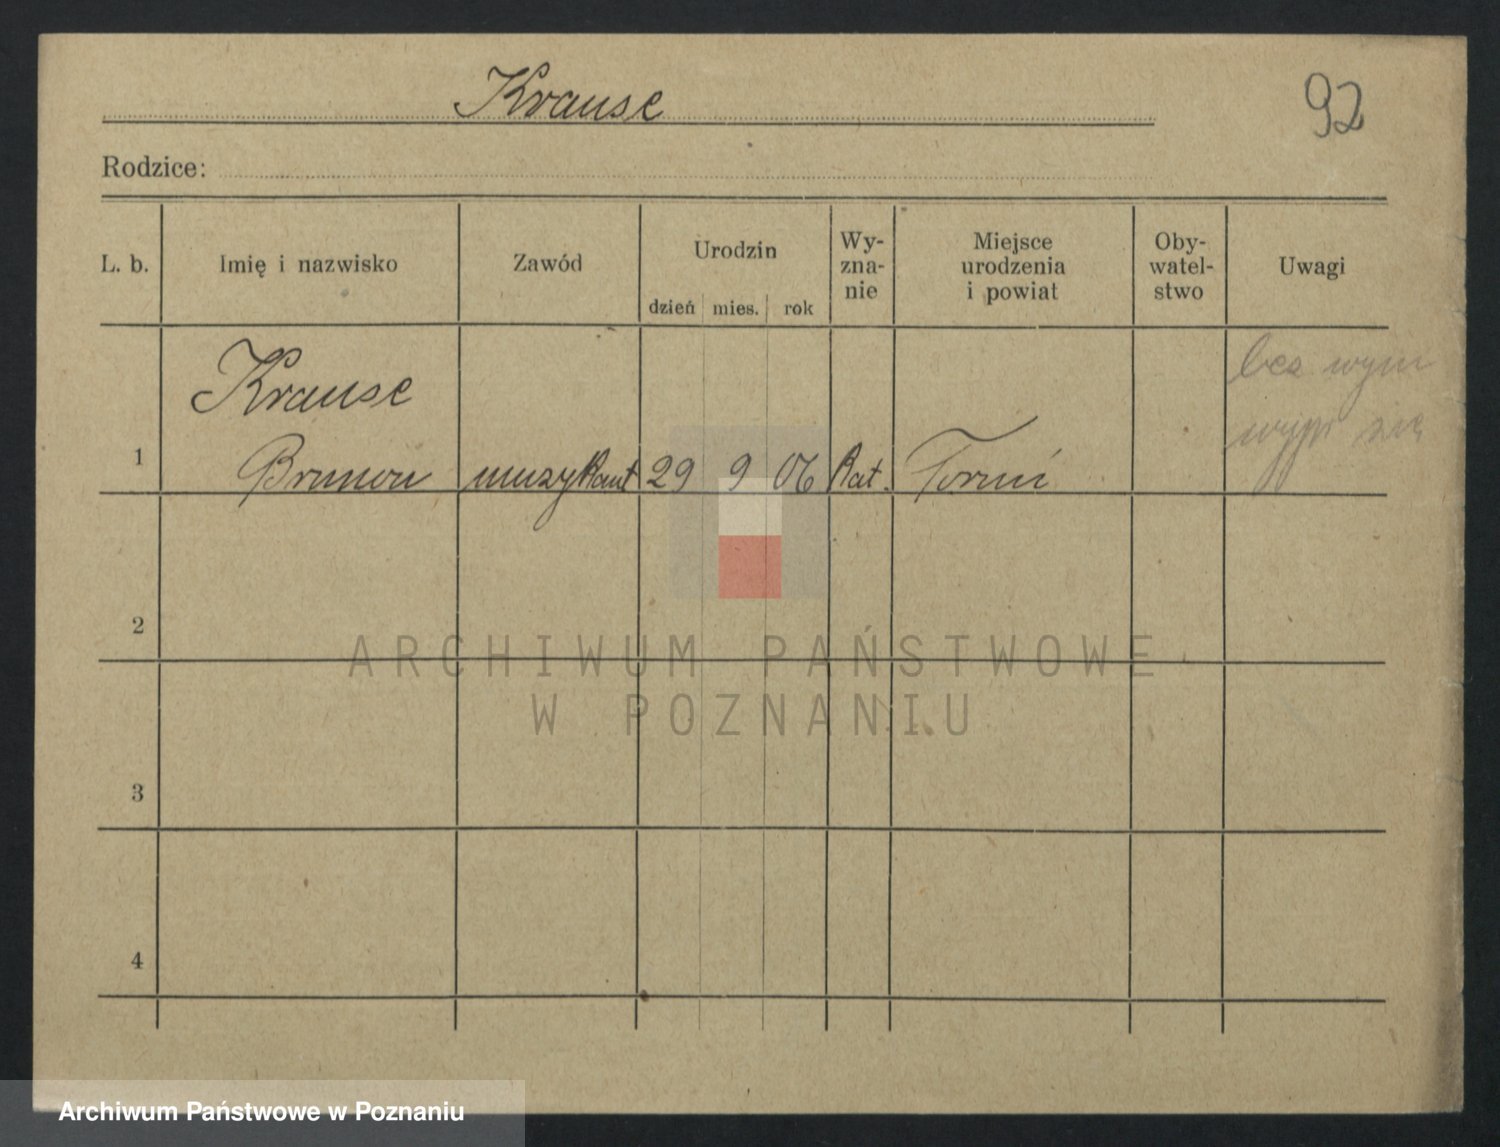 Krause
92
Rodzice:
L. b.
Imię i nazwisko
Zawód
Urodzin
dzień mies. rok
Wy-
zna-
nie
Miejsce
urodzenia
i powiat
Oby-
watel-
stwo
Uwagi
Krause
1 Brunon muzykant 29 9 06 kat. Toruń
bez wym
się
2
3
4
ARCHIWUM PAŃSTWOWE
W POZNANIU
Archiwum Państwowe w Poznaniu